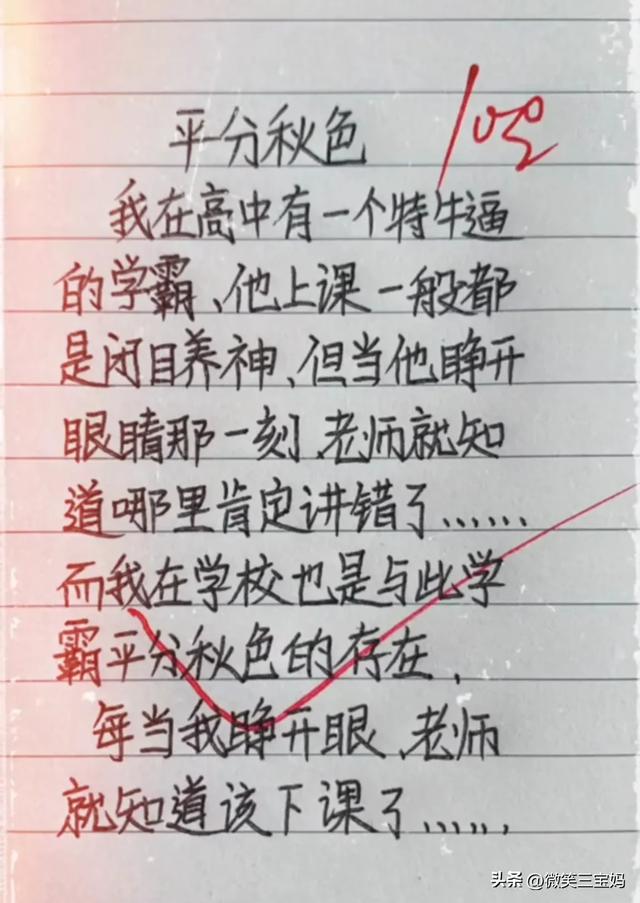 平分秋色
我在高中有一个特牛逼
的学霸、他上课一般都
是闭目养神、但当他睁开
眼睛那一刻、老师就知
道哪里肯定讲错了……
而我在学校也是与此学
霸平分秋色的存在，
每当我睁开眼、老师
就知道该下课了……
头条 @微笑三宝妈